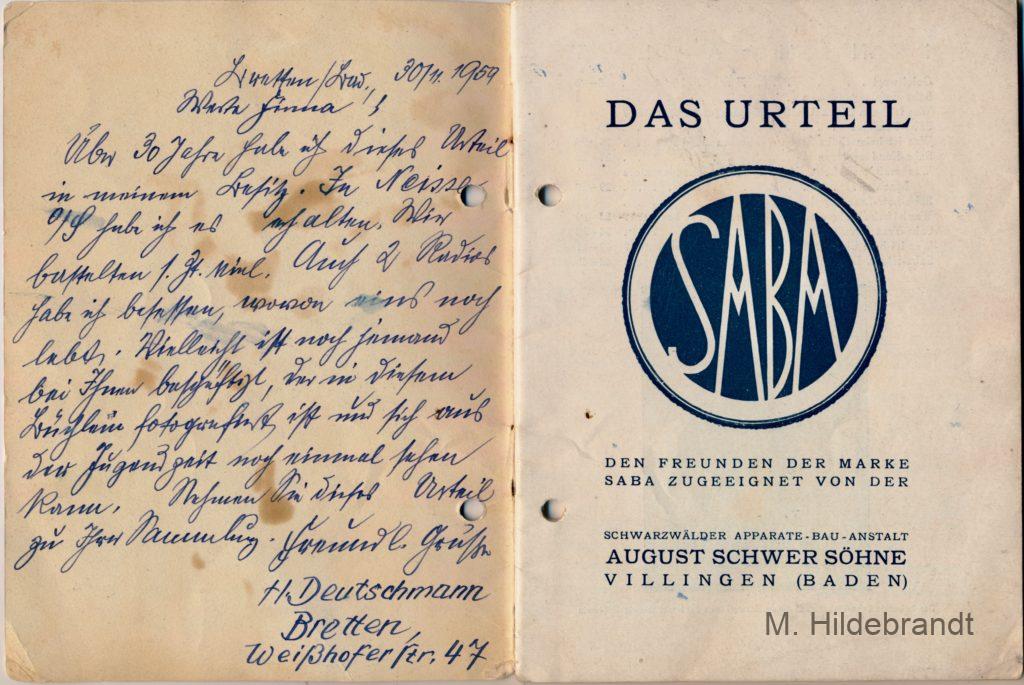 Bretten/Bad., 30/11. 1959
Werte Firma !
Über 30 Jahre habe ich dieses Urteil
in meinem Besitz. In Neisse
O/S habe ich es erhalten. Wir
bastelten s. Zt. viel. Auch 2 Radios
habe ich besessen, wovon eins noch
lebt. Vielleicht ist noch jemand
bei Ihnen beschäftigt, der in diesem
Büchlein fotografiert ist und sich aus
der Jugendzeit noch einmal sehen
kann. Nehmen Sie dieses Urteil
zu Ihrer Sammlung. Freundl. Grüsse
H. Deutschmann
Bretten,
Weißhoferstr. 47
DAS URTEIL
SABA
DEN FREUNDEN DER MARKE
SABA ZUGEEIGNET VON DER
SCHWARZWÄLDER APPARATE-BAU-ANSTALT
AUGUST SCHWER SÖHNE
VILLINGEN (BADEN)
M. Hildebrandt